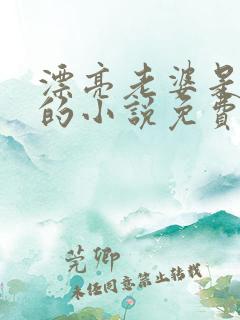 漂亮老婆是
的小說免費
莞卿
未經同意禁止轉載